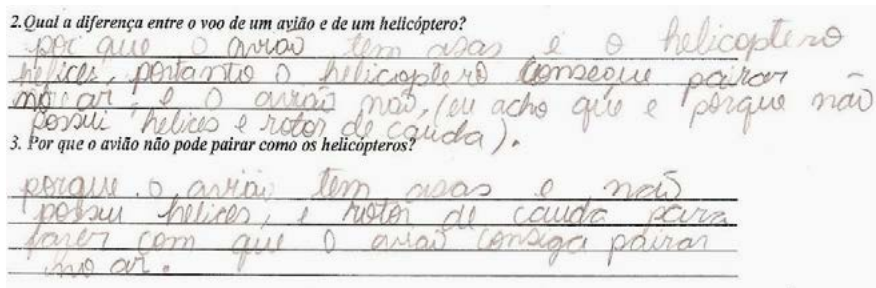 2. Qual a diferença entre o voo de um avião e de um helicóptero?
por que o avião tem asas e o helicoptero
helices, portanto o helicoptero consegue pairar
no ar, e o avião não, (eu acho que e porque não
possui helices e rotor de cauda).
3. Por que o avião não pode pairar como os helicópteros?
porque o avião tem asas e não
possui helices, e rotor de cauda para
fazer com que o avião consiga pairar
no ar.